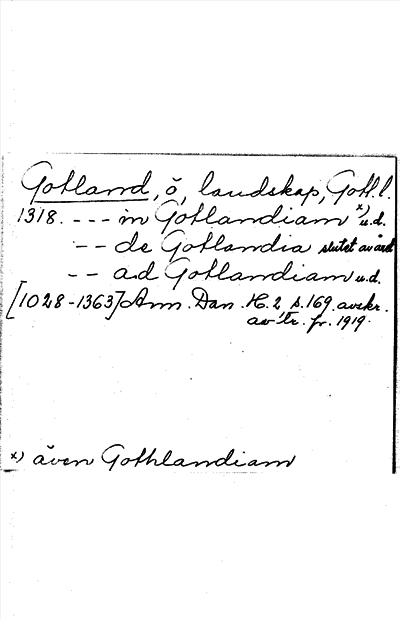 Gotland, ö, landskap, Gotl. l.
1318. --- in Gotlandiam x) u.d.
-- de Gotlandia slutet av året
-- ad Gotlandiam u.d.
[1028-1363] Ann. Dan. H. 2 s. 169. avskr.
av tr. fr. 1919.
x) även Gothlandiam